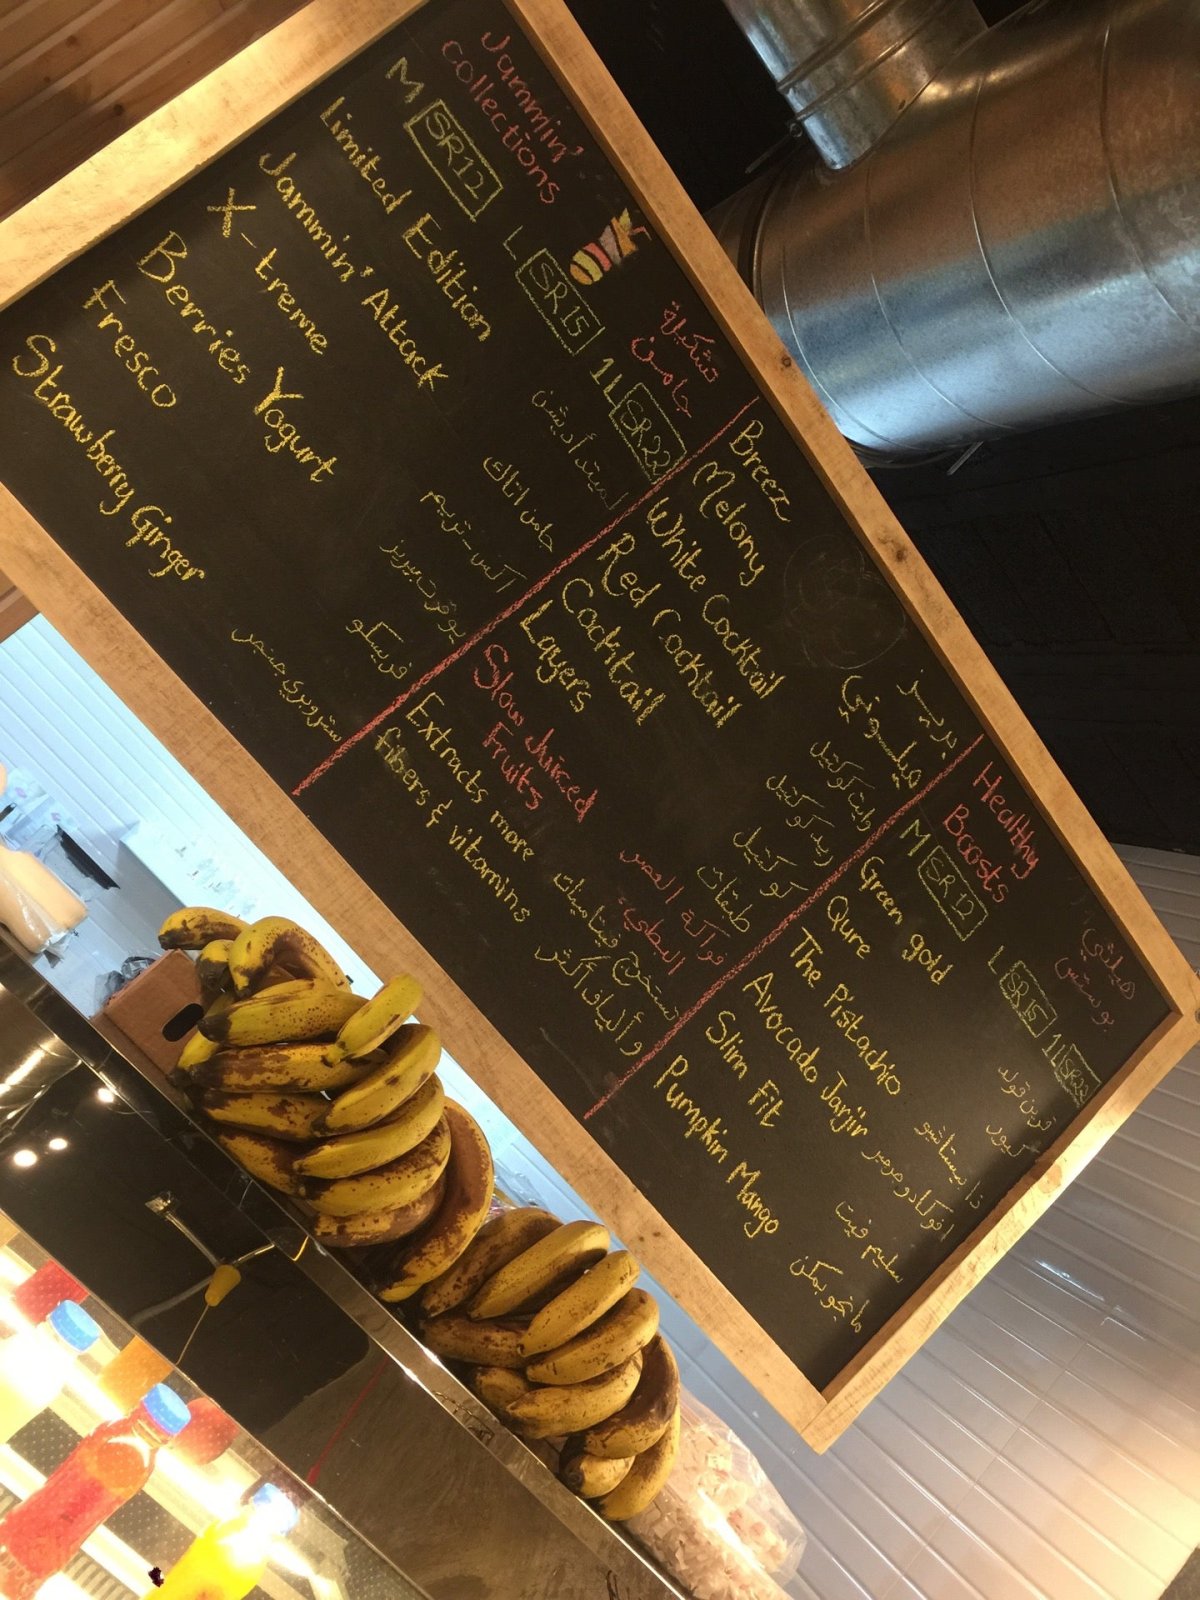 Jammin'
collections
تشكيلة
جامن
M SR12 L SR15 1L SR22
Limited Edition
لميتد أديشن
Jammin' Attack
جامن اتاك
X-treme
أكس-تريم
Berries Yogurt
يوقرت بيريز
Fresco
فريسكو
Strawberry Ginger
ستروبري جنجر
Breez
بريز
Melony
ميلوني
White Cocktail
وايت كوكتيل
Red Cocktail
ريد كوكتيل
Cocktail
كوكتيل
Layers
طبقات
Slow Juiced
Fruits
فواكة العصر
البطيء
Extracts more
fibers & vitamins
تستخرج فيتامينات
وألياف أكثر
Healthy
Boosts
هيلثي
بوستس
M SR12 L SR15 1L SR22
Green gold
قرين قولد
Qure
كيور
The Pistachio
ذا بيستاشيو
Avocado Jarjir
افوكادو جرجير
Slim Fit
سليم فيت
Pumpkin Mango
مانجو بمكن